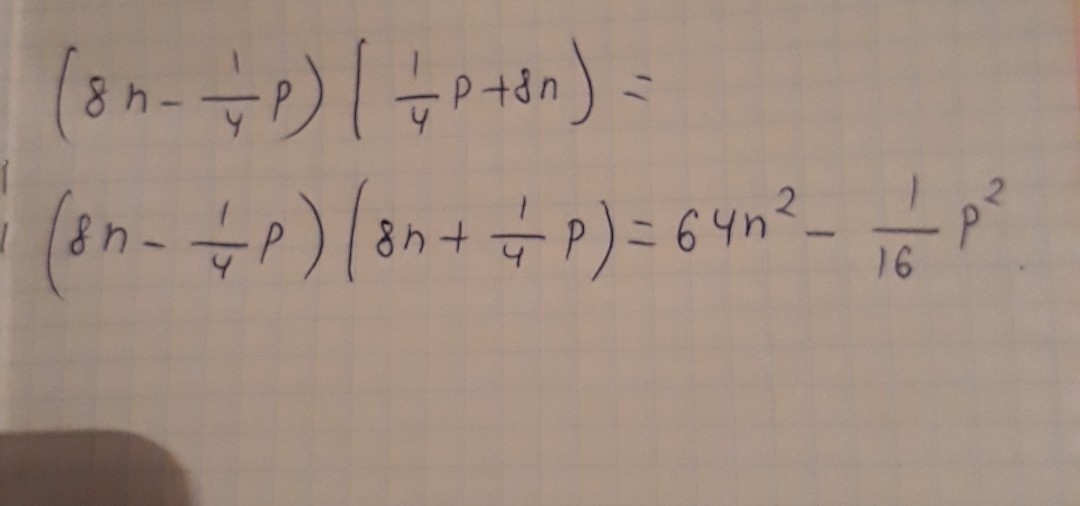 (8n - 1/4 p) (1/4 p + 8n) =
(8n - 1/4 p) (8n + 1/4 p) = 64n² - 1/16 p²